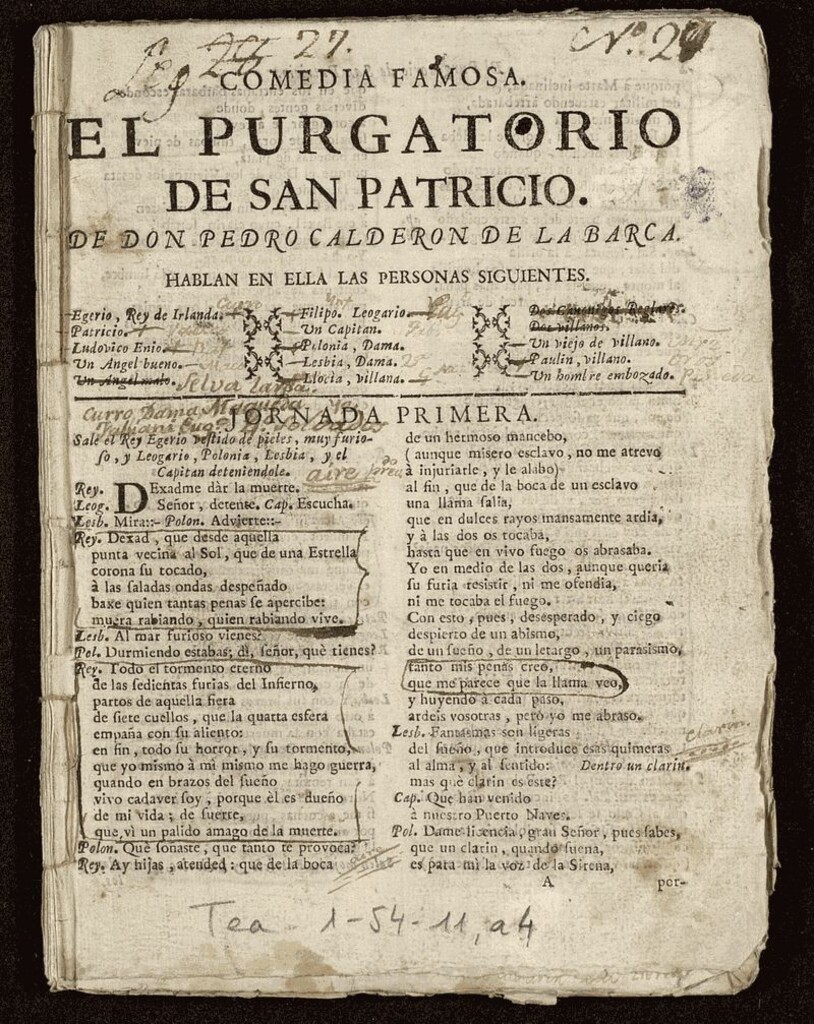 Leg 27.
Nº. 29
COMEDIA FAMOSA.
EL PURGATORIO
DE SAN PATRICIO.
DE DON PEDRO CALDERON DE LA BARCA.
HABLAN EN ELLA LAS PERSONAS SIGUIENTES.
Egerio, Rey de Irlanda.
Patricio.
Ludovico Enio.
Un Angel bueno.
Un Angel malo.
Filipo. Leogario.
Un Capitan.
Polonia, Dama.
Lesbia, Dama.
Llocia, villana.
Dos Canonigos Reglares.
Dos villanos.
Un viejo de villano.
Paulin, villano.
Un hombre embozado.
JORNADA PRIMERA.
Sale el Rey Egerio vestido de pieles, muy furio-
so, y Leogario, Polonia, Lesbia, y el
Capitan deteniendole.
aire
Rey. DExadme dàr la muerte.
Leog. Señor, detente. Cap. Escucha.
Lesb. Mira::- Polon. Advierte::-
Rey. Dexad, que desde aquella
punta vecina al Sol, que de una Estrella
corona su tocado,
à las saladas ondas despeñado
baxe quien tantas penas se apercibe:
muera rabiando, quien rabiando vive.
Lesb. Al mar furioso vienes?
Pol. Durmiendo estabas; dì, señor, què tienes?
Rey. Todo el tormento eterno
de las sedientas furias del Infierno,
partos de aquella fiera
de siete cuellos, que la quarta esfera
empaña con su aliento:
en fin, todo su horror, y su tormento,
que yo mismo à mi mismo me hago guerra,
quando en brazos del sueño
vivo cadaver soy, porque èl es dueño
de mi vida; de suerte,
que vì un palido amago de la muerte.
Polon. Què soñaste, que tanto te provoca?
Rey. Ay hijas, atended: que de la boca
de un hermoso mancebo,
(aunque misero esclavo, no me atrevo
à injuriarle, y le alabo)
al fin, que de la boca de un esclavo
una llama salia,
que en dulces rayos mansamente ardia,
y à las dos os tocaba,
hasta que en vivo fuego os abrasaba.
Yo en medio de las dos, aunque queria
su furia resistir, ni me ofendia,
ni me tocaba el fuego.
Con esto, pues, desesperado, y ciego
despierto de un abismo,
de un sueño, de un letargo, un parasismo,
tanto mis penas creo,
que me parece que la llama veo,
y huyendo à cada paso,
ardeis vosotras, pero yo me abraso.
Lesb. Fantasmas son ligeras
del sueño, que introduce esas quimeras
al alma, y al sentido: Dentro un clarin.
mas què clarin es este?
clarin
Cap. Que han venido
à nuestro Puerto Naves.
Pol. Dame licencia, gran Señor, pues sabes,
que un clarin, quando suena,
es para mì la voz de la Sirena,
A
por-
Tea 1-54-11, a4